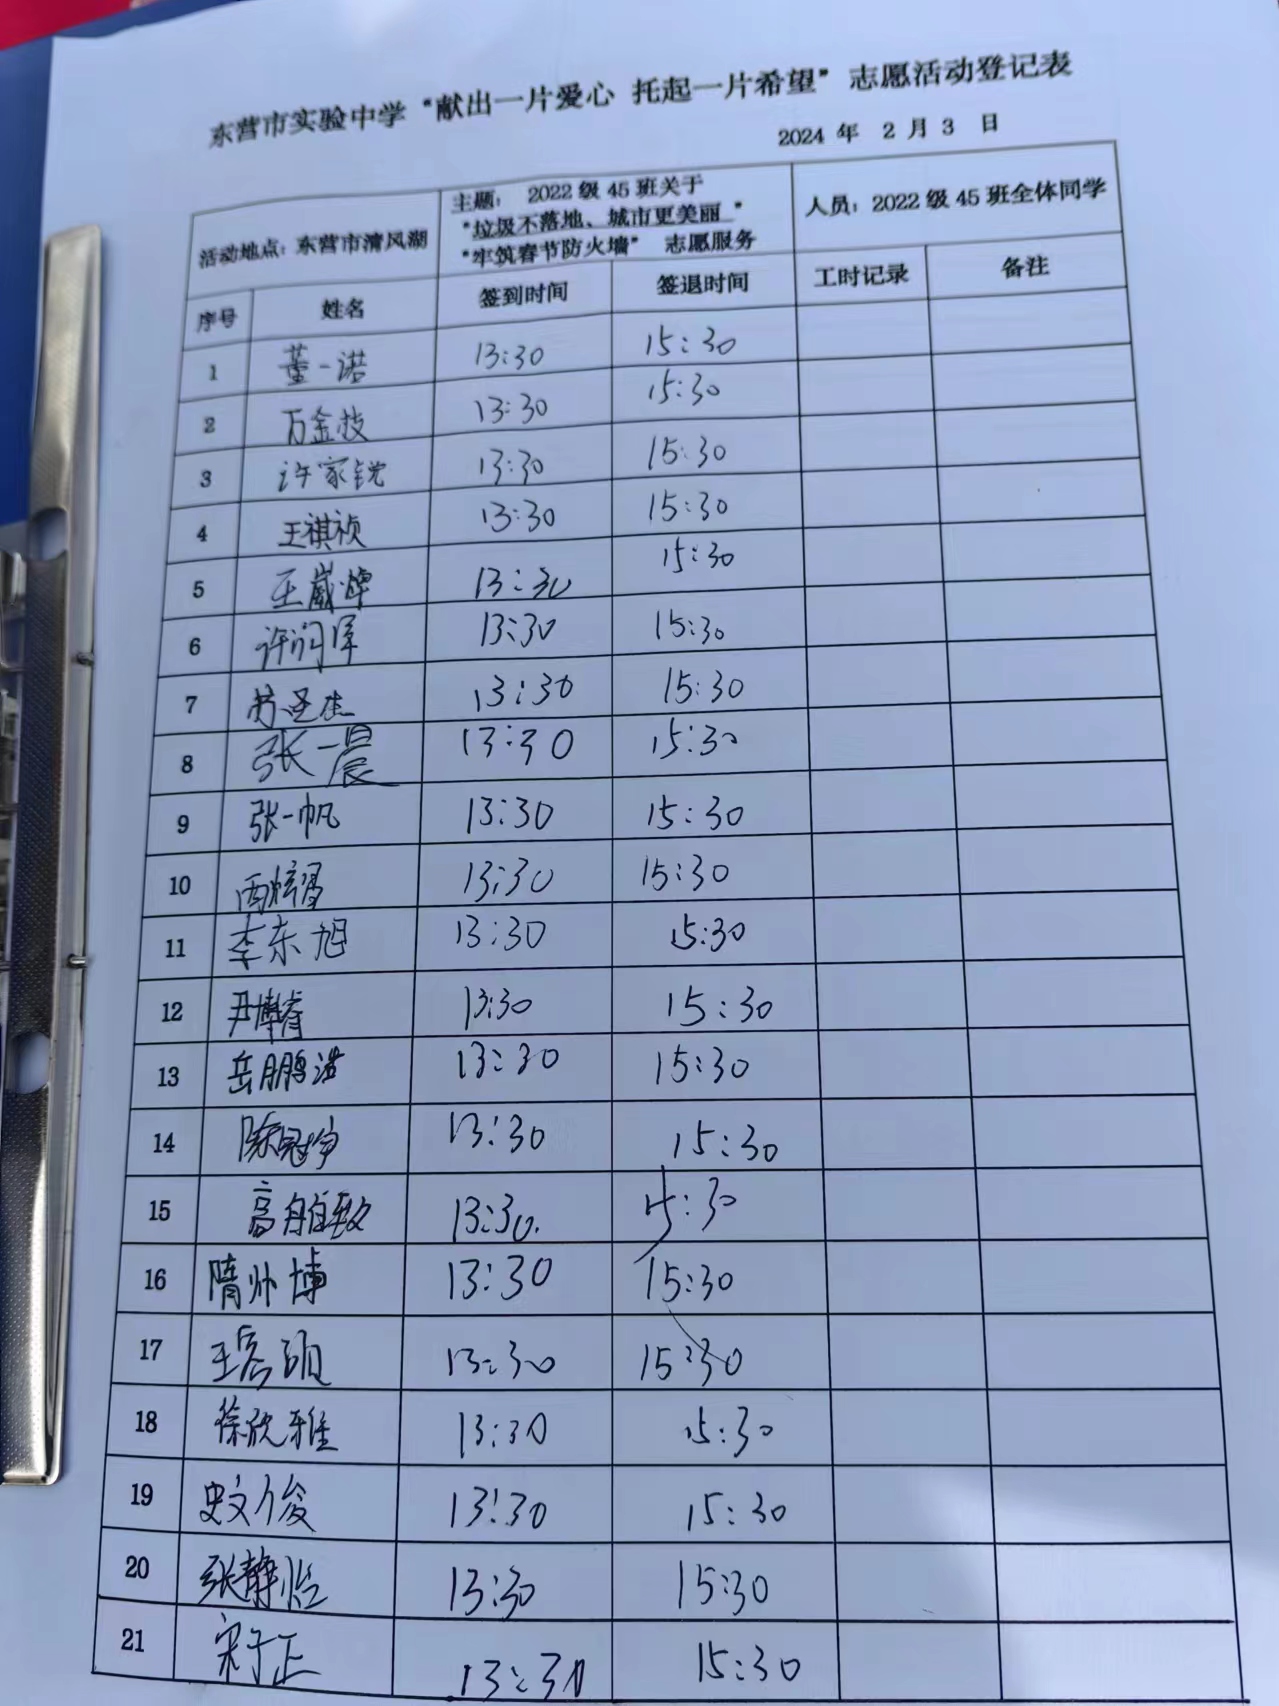 东营市实验中学“献出一片爱心 托起一片希望”志愿活动登记表
2024 年 2 月 3 日
活动地点：东营市清风湖 主题： 2022 级 45 班关于 人员：2022 级 45 班全体同学
“垃圾不落地、城市更美丽 ”
“牢筑春节防火墙” 志愿服务
序号 姓名 签到时间 签退时间 工时记录 备注
1 董一诺 13:30 15:30
2 万金枝 13:30 15:30
3 许家锐 13:30 15:30
4 王祺祯 13:30 15:30
5 王崴 13:30 15:30
6 许润泽 13:30 15:30
7 苏圣杰 13:30 15:30
8 张一晨 13:30 15:30
9 张一帆 13:30 15:30
10 13:30 15:30
11 李东旭 13:30 15:30
12 尹博睿 13:30 15:30
13 岳鹏浩 13:30 15:30
14 陈冠宇 13:30 15:30
15 高 13:30. 15:30
16 隋帅博 13:30 15:30
17 王 13:30 15:30
18 徐欣雅 13:30 15:30
19 史文俊 13:30 15:30
20 张静怡 13:30 15:30
21 宋于正 13:30 15:30